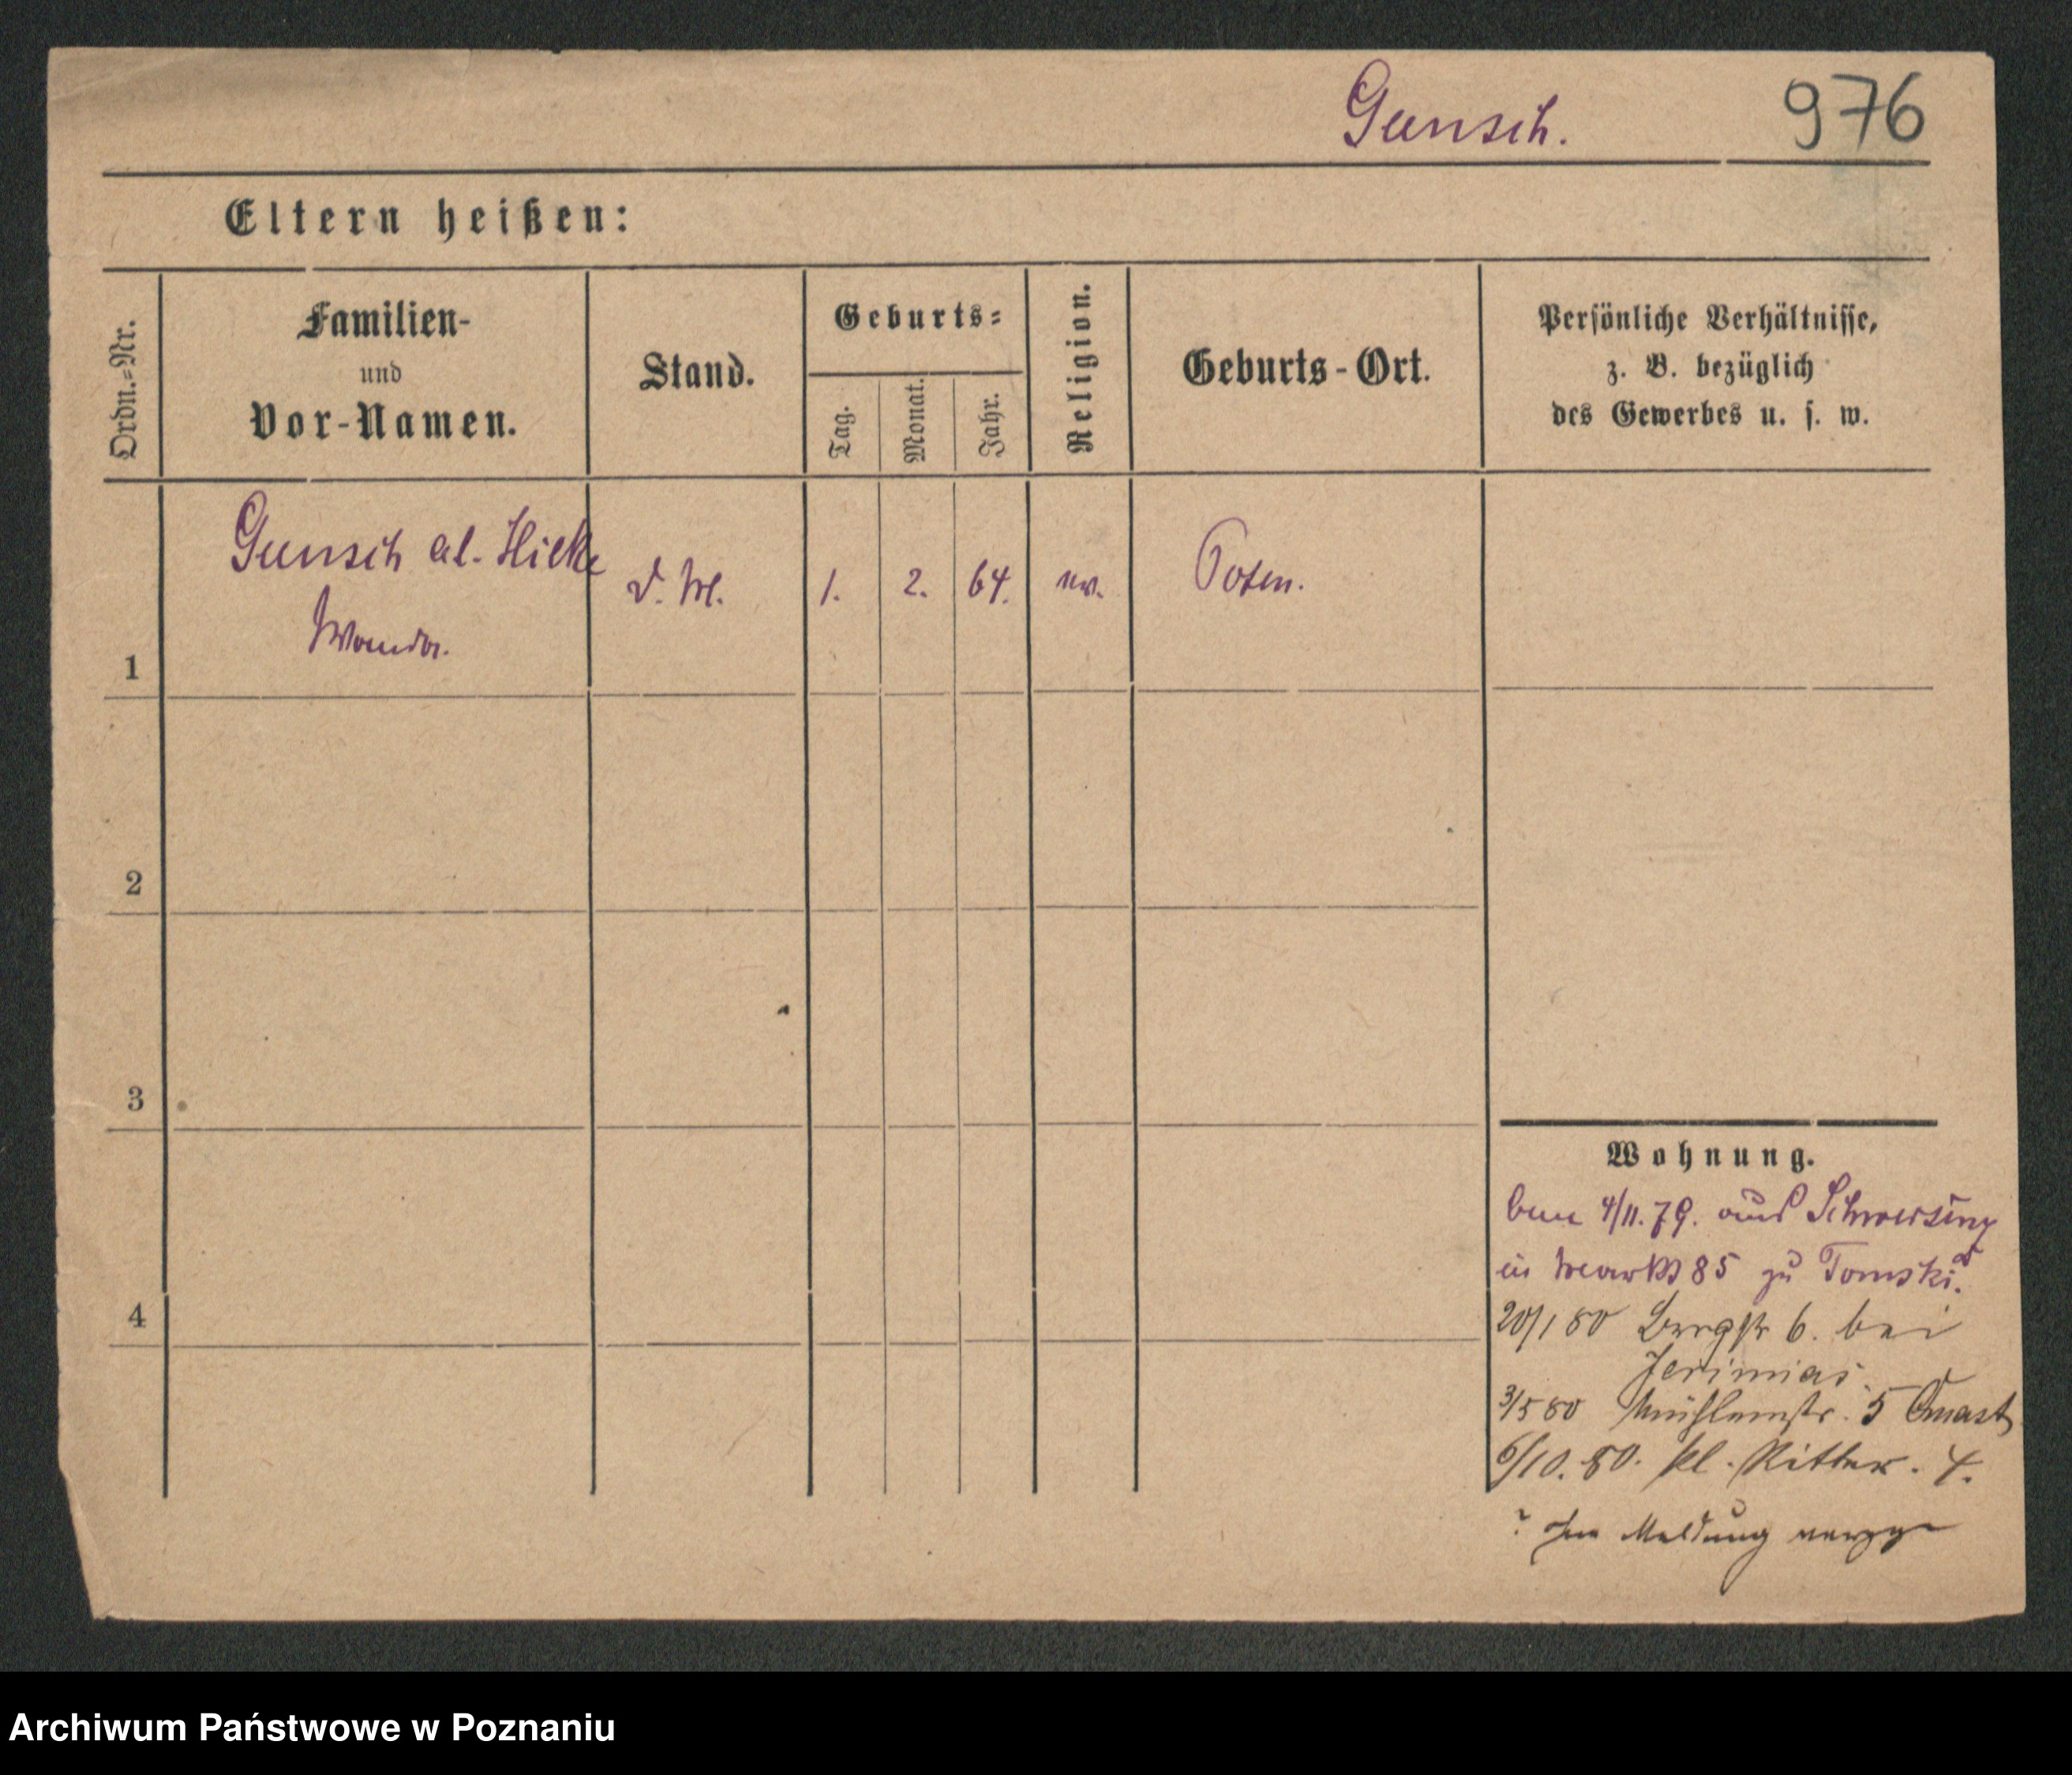 Gunsch.
976
Eltern heißen:
Ordn.=Nr.
Familien-
und
Vor-Namen.
Stand.
Geburts=
Tag.
Monat.
Jahr.
Religion.
Geburts-Ort.
Persönliche Verhältnisse,
z. B. bezüglich
des Gewerbes u. s. w.
Gunsch al. Hicke
Wanda.
1. 2. 64.
Posen.
1
2
3
4
Wohnung.
4/11.79. aus Schwersenz
in Markt 85 zu Tomski.
20/1 80 Bergstr 6. bei
Jerimias.
3/5 80 Mühlenstr. 5
6/10. 80. kl. Ritter. 4.
? Meldung
Archiwum Państwowe w Poznaniu